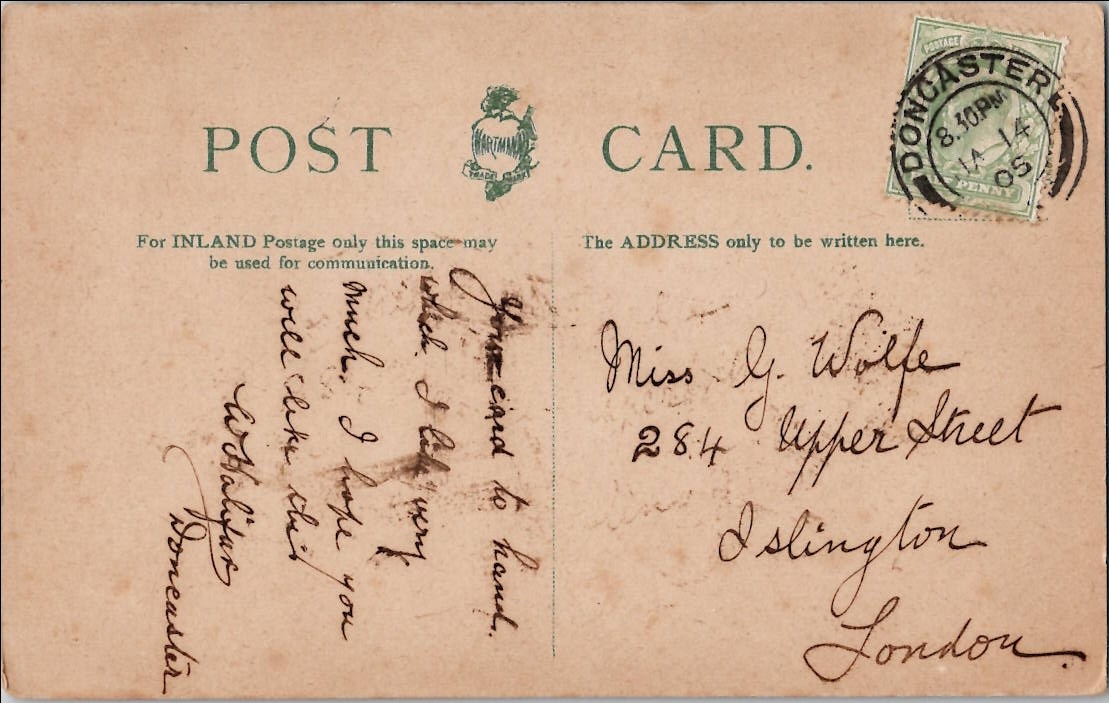 POST CARD.
HARTMANN
TRADE MARK
POSTAGE
PENNY
DONCASTER
8.30PM
JA 14
05
For INLAND Postage only this space may
be used for communication.
The ADDRESS only to be written here.
Your card to hand.
which I like very
much. I hope you
will like this
W Halifax
Doncaster
Miss G. Wolfe
284 Upper Street
Islington
London.